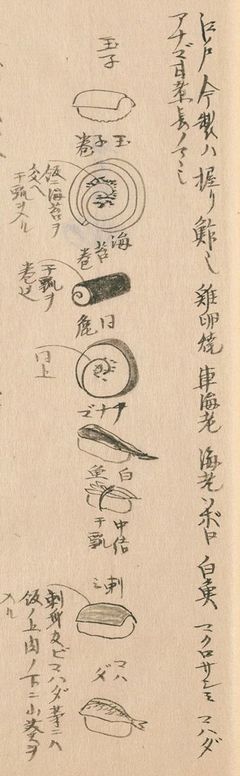 江戸今製ハ握リ鮓也 雞卵焼 車海老 海老ソボロ 白魚 マグロサシミ マハダ
アナゴ甘煮長ノマヽ也
玉子
玉子巻
飯ニ海苔ヲ
交ヘ
干瓢ヲ入ル
海苔巻
干瓢ヲ
巻込
同上
アナゴ
白魚
中結
干瓢
刺ミ
刺身及ビマハダ等ニハ
飯ノ上肉ノ下ニ山葵ヲ
入ル
マハダ